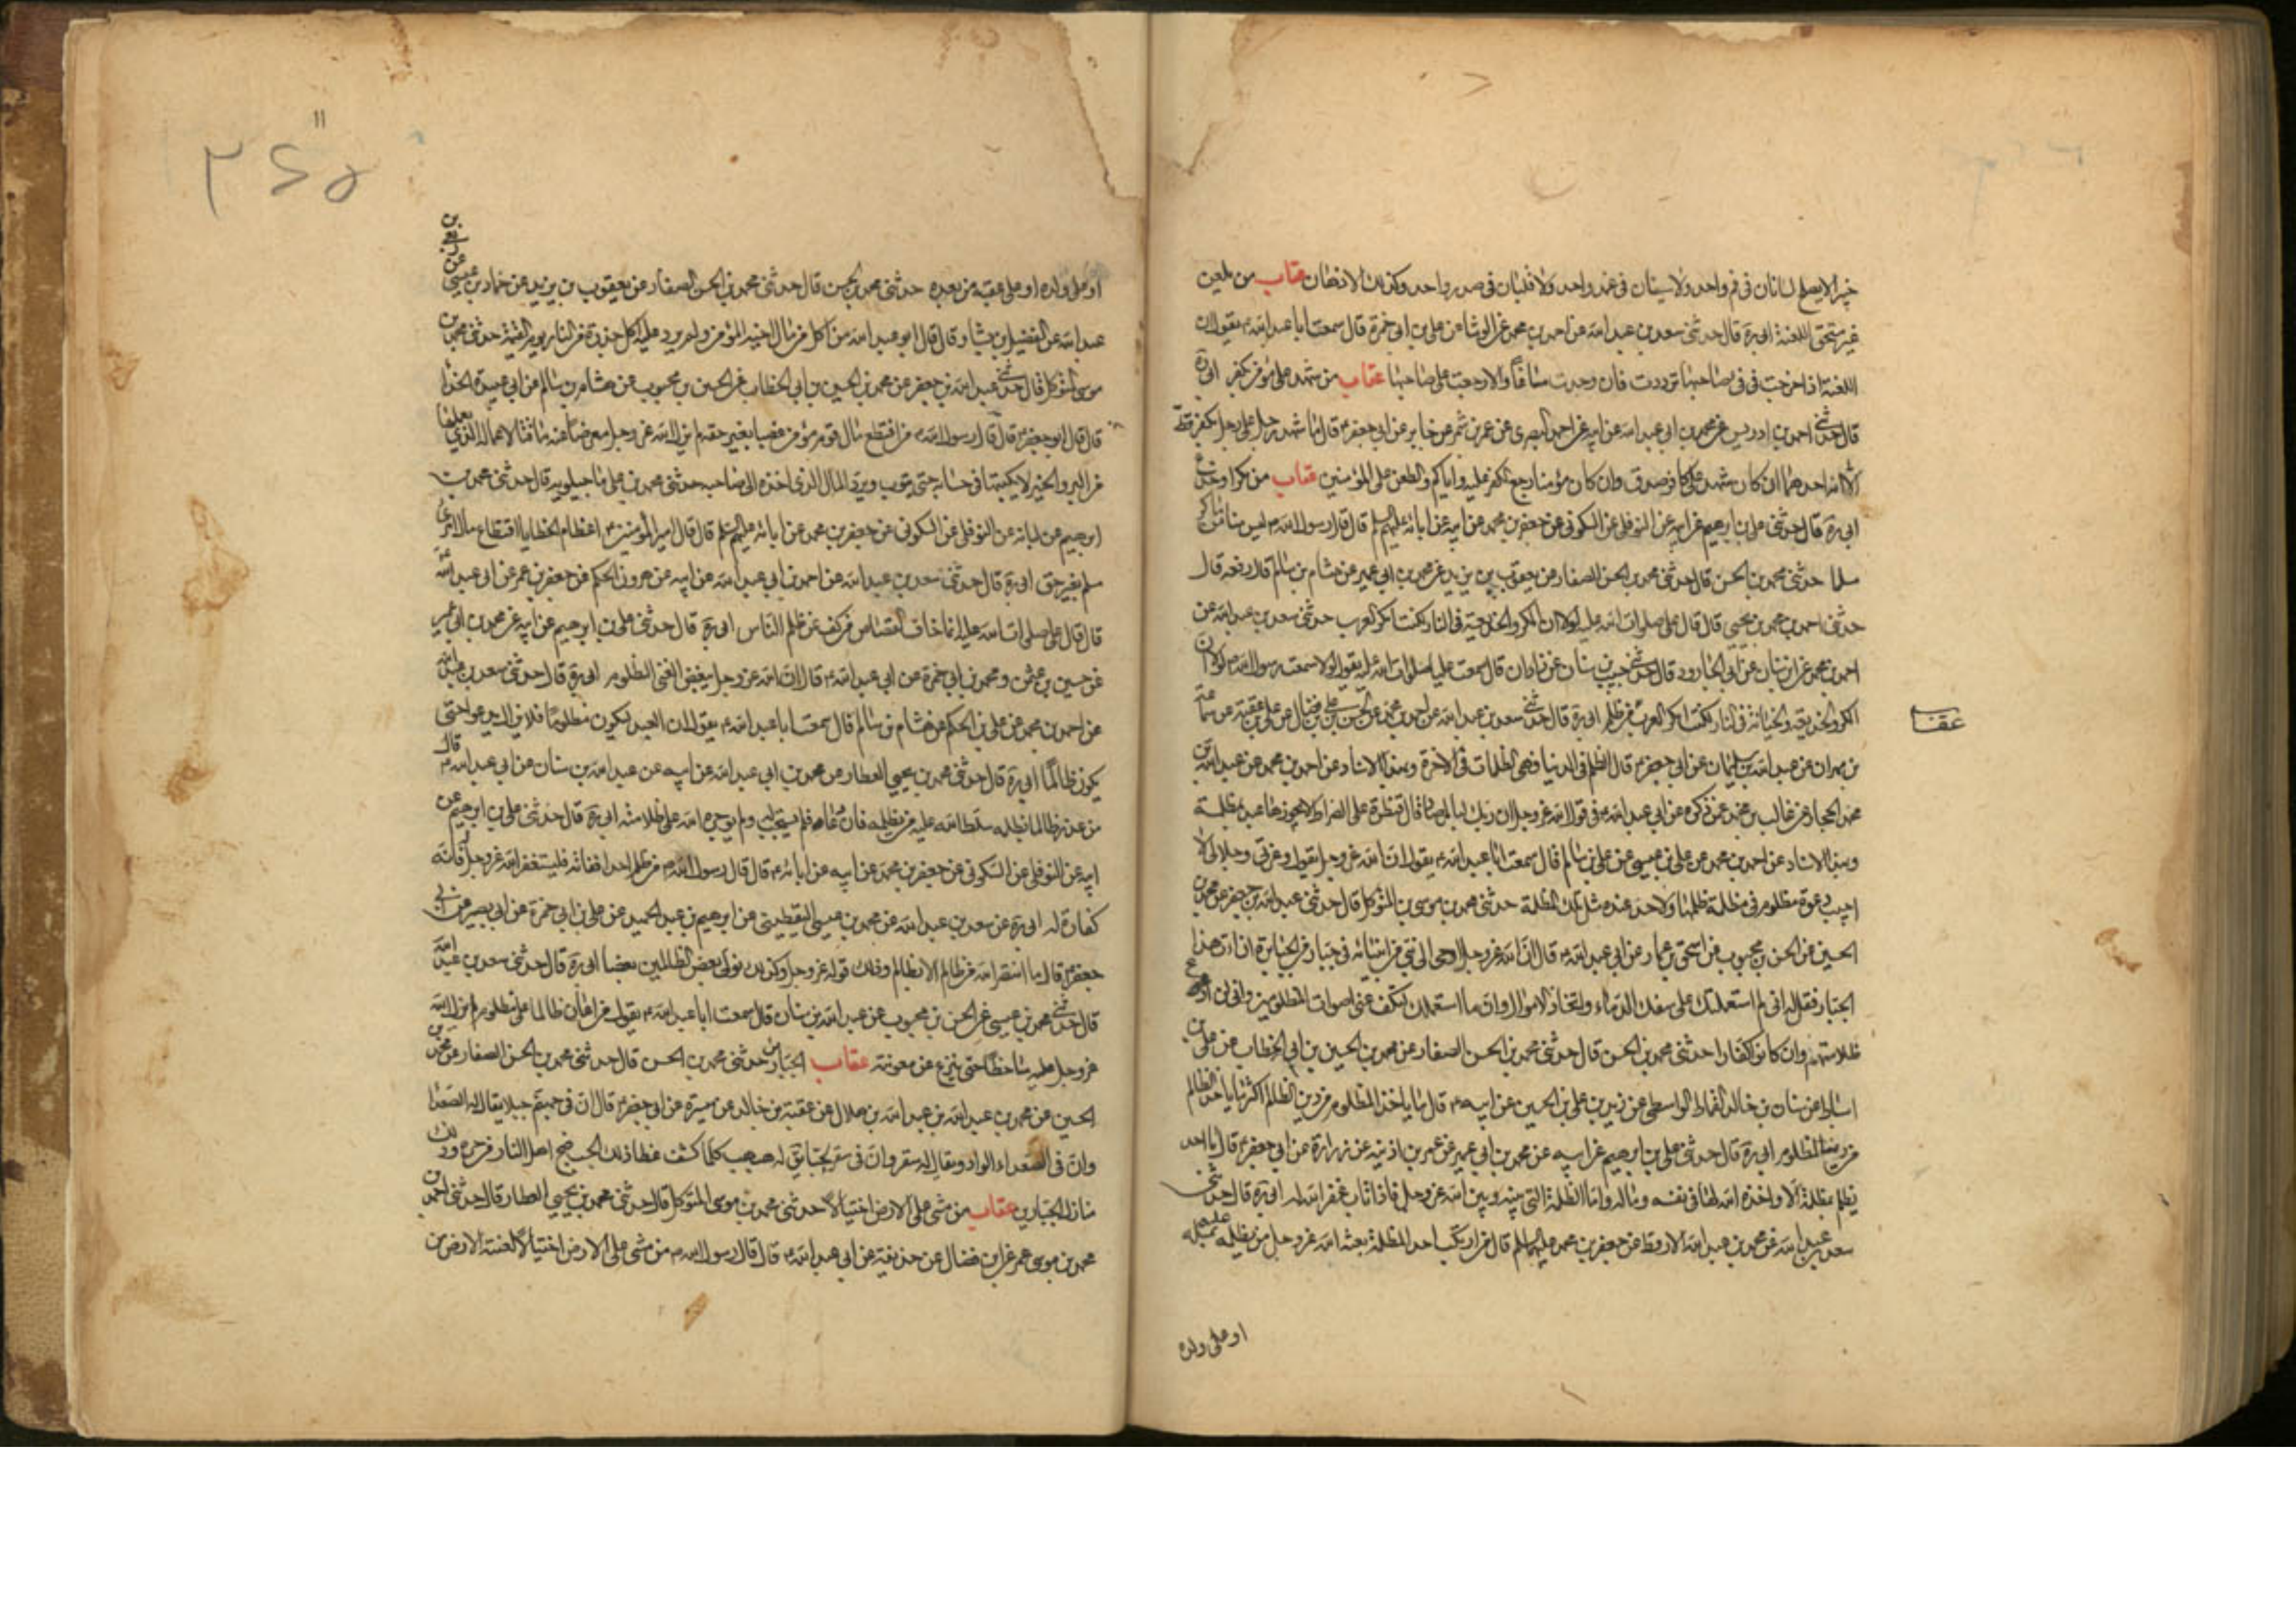 خير لا يصلح لسانان في فم واحد ولا سيفان في غمد واحد ولا قلبان في صدر واحد وكذلك الاذهان عقاب من لعن
غير مستحق اللعنة ابي ره قال حدثني سعد بن عبد الله عن احمد بن محمد عن الوشا عن علي بن ابي حمزة قال سمعت ابا عبد الله ع يقول ان
اللعنة اذا خرجت من في صاحبها ترددت فان وجدت مساغا والا رجعت على صاحبها عقاب من شهد على مؤمن بكفر ابي ره
قال حدثني احمد بن ادريس عن محمد بن ابي عبد الله عن ابيه عن احمد البصري عن عمرو بن شمر عن جابر عن ابي جعفر ع قال ما شهد رجل على رجل بكفر قط
الا باء به احدهما ان كان شهد على كافر صدق وان كان مؤمنا رجع الكفر عليه واياكم والطعن على المؤمنين عقاب من مكر او خدع
ابي ره قال حدثني علي بن ابرهيم عن ابيه عن النوفلي عن السكوني عن جعفر بن محمد عن ابيه عن ابائه عليهم السلم قال قال رسول الله ص ليس منا من ماكر
مسلما حدثني محمد بن الحسن قال حدثني محمد بن الحسن الصفار عن يعقوب بن يزيد عن محمد بن ابي عمير عن هشام بن سالم رفعه قال
قال علي صلوات الله عليه لولا ان المكر والخديعة في النار لكنت امكر العرب حدثني سعد بن عبد الله عن
احمد بن محمد عن ابن سنان عن ابي الجارود قال حدثني حبيب بن سنان عن زاذان قال سمعت عليا صلوات الله عليه يقول لولا اني سمعت رسول الله ص يقول ان
المكر والخديعة والخيانة في النار لكنت امكر العرب من ظلم ابي ره قال حدثني سعد بن عبد الله عن احمد بن محمد عن الحسن بن علي بن فضال عن علي بن عقبة عن سماعة
عقاب
بن مهران عن عبد الله بن سليمان عن ابي جعفر ع قال الظلم في الدنيا هي الظلمات في الاخرة وبهذا الاسناد عن احمد بن محمد عن عبد الله بن
محمد الحجال عن غالب بن محمد عن ذكره عن ابي عبد الله ع في قول الله عز وجل ان ربك لبالمرصاد قال قنطرة على الصراط لا يجوزها عبد بمظلمة
وبهذا الاسناد عن احمد بن محمد عن علي بن عيسى عن علي بن سالم قال سمعت ابا عبد الله ع يقول ان الله عز وجل يقول وعزتي وجلالي لا
اجيب دعوة مظلوم في مظلمة ظلمها ولاحد عنده مثل تلك المظلمة حدثني محمد بن موسى بن المتوكل قال حدثني عبد الله بن جعفر عن محمد بن
الحسين عن الحسن بن محبوب عن اسحق بن عمار عن ابي عبد الله ع قال ان الله عز وجل اوحى الى نبي من انبيائه في مملكة جبار من الجبابرة ان ائت هذا
الجبار فقل له اني لم استعملك على سفك الدماء واتخاذ الاموال وانما استعملتك لتكف عني اصوات المظلومين واني لن ادع
ظلامتهم وان كانوا كفارا حدثني محمد بن الحسن قال حدثني محمد بن الحسن الصفار عن محمد بن الحسين بن ابي الخطاب عن علي بن
اسباط عن سنان بن خالد القماط الواسطي عن زيد بن علي بن الحسين عن ابيه ع قال ما ياخذ المظلوم من دين الظالم اكثر مما ياخذ الظالم
من دنيا المظلوم ابي ره قال حدثني علي بن ابرهيم عن ابيه عن محمد بن ابي عمير عن عمر بن اذينه عن زرارة عن ابي جعفر ع قال ما احد
يظلم بمظلمة الا واخذه الله بها في نفسه وماله واما الظلم الذي بينه وبين الله عز وجل فاذا تاب غفر الله له ابي ره قال حدثني
سعد بن عبد الله عن محمد بن عبد الله الارقط عن جعفر بن محمد عليهما السلم قال من ارتكب احدا بمظلمة بعث الله عز وجل من يظلمه بمثله
او على ولده
او على ولده او على عقبه من بعده حدثني محمد بن الحسن قال حدثني محمد بن الحسن الصفار عن يعقوب بن يزيد عن حماد بن عيسى عن ربعي بن
عبد الله عن الفضيل بن يسار قال قال ابو عبد الله من اكل من مال اخيه المؤمن ولم يرد عليه اكل جذوة من النار يوم القيمة حدثني محمد بن
موسى المتوكل قال حدثني عبد الله بن جعفر عن محمد بن الحسين بن ابي الخطاب عن الحسن بن محبوب عن هشام بن سالم عن ابي عبيدة الحذا
قال قال ابو جعفر ع قال رسول الله ص من اقتطع مال مؤمن غصبا بغير حقه لم يزل الله عز وجل معرضا عنه ماقتا لاعماله الذي يعملها
من البر والخير لا يكتبها في حسناته حتى يتوب ويرد المال الذي اخذه الى صاحبه حدثني محمد بن علي ماجيلويه قال حدثني محمد بن
ابرهيم عن ابيه عن النوفلي عن السكوني عن جعفر بن محمد عن ابائه عليهم السلم قال قال امير المؤمنين ع اعظم الخطايا اقتطاع مال امرئ
مسلم بغير حق ابي ره قال حدثني سعد بن عبد الله عن احمد بن ابي عبد الله عن ابيه عن هرون بن الحكم عن جعفر بن عمر عن ابي عبد الله
قال قال علي صلوات الله عليه انما خاف القصاص من كف عن ظلم الناس ابي ره قال حدثني علي بن ابرهيم عن ابيه عن محمد بن ابي عمير
عن حسين بن عثمن ومحمد بن ابي حمزة عن ابي عبد الله ع قال ان الله عز وجل يبغض الغني الظلوم ابي ره قال حدثني سعد بن عبد الله
عن احمد بن محمد عن علي بن الحكم عن هشام بن سالم قال سمعت ابا عبد الله ع يقول ان العبد ليكون مظلوما فلا يزال يدعو حتى
يكون ظالما ابي ره قال حدثني محمد بن يحيى العطار عن محمد بن ابي عبد الله عن ابيه عن عبد الله بن سنان عن ابي عبد الله ع قال
من عذر ظالما بظلمه سلط الله عليه من يظلمه فان دعا لم يستجب له ولم يوجره الله على ظلامته ابي ره قال حدثني علي بن ابرهيم عن
ابيه عن النوفلي عن السكوني عن جعفر بن محمد عن ابيه عن ابائه ع قال قال رسول الله ص من ظلم احدا ففاته فليستغفر الله عز وجل فانه
كفارة له ابي ره عن سعد بن عبد الله عن محمد بن عيسى اليقطيني عن ابرهيم بن عبد الحميد عن علي بن ابي حمزة عن ابي بصير عن ابي
جعفر ع قال ما انتصر الله من ظالم الا بظالم وذلك قوله عز وجل وكذلك نولي بعض الظالمين بعضا ابي ره قال حدثني سعد بن عبد الله
قال حدثني محمد بن عيسى عن الحسن بن محبوب عن عبد الله بن سنان قال سمعت ابا عبد الله ع يقول من اعان ظالما على مظلوم لم يزل الله
عز وجل عليه ساخطا حتى ينزع عن معونته عقاب الجبارين حدثني محمد بن الحسن قال حدثني محمد بن الحسن الصفار عن محمد بن
الحسين عن محمد بن عبد الله بن هلال عن عقبة بن خالد عن ميسرة عن ابي جعفر ع قال ان في جهنم جبلا يقال له الصعدا
وان في الصعداء لواد يقال له سقر وان في سقر لجبا يقال له هبهب كلما كشف غطا ذلك الجب ضج اهل النار من حره وذلك
منازل الجبارين عقاب من مشى على الارض اختيالا حدثني محمد بن موسى المتوكل قال حدثني محمد بن يحيى العطار قال حدثني احمد بن
محمد عن موسى بن عمر عن ابن فضال عن حذيفة عن ابي عبد الله ع قال قال رسول الله ص من مشى على الارض اختيالا لعنته الارض من